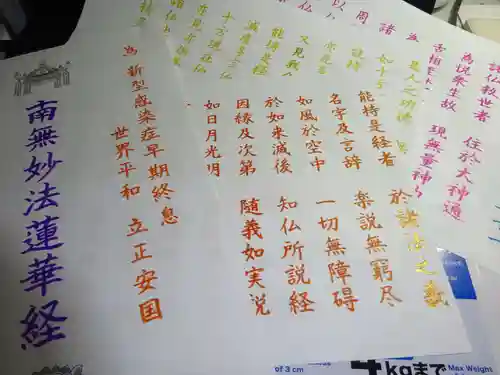 諸仏救世者 住於大神通
為悦衆生故 現無量神
是人之功徳
如十方
能持
又見我
能持是経
滅度多宝仏
十方現在仏
能持是経者 於諸法之義
名字及言辞 楽説無窮尽
如風於空中 一切無障碍
於如来滅後 知仏所説経
因縁及次第 随義如実説
如日月光明
為 新型感染症早期終息
世界平和 立正安国
南無妙法蓮華経
of 3 cm
4kgまで
Max Weight